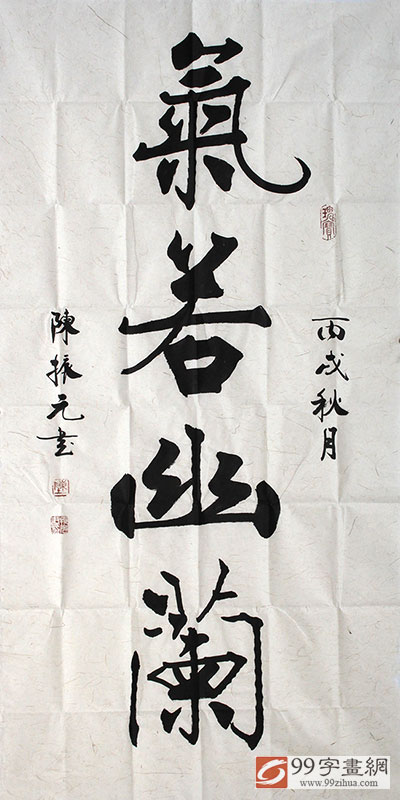 丙戌秋月
氣若幽蘭
陳振元書
99字畫網
www.99zihua.com